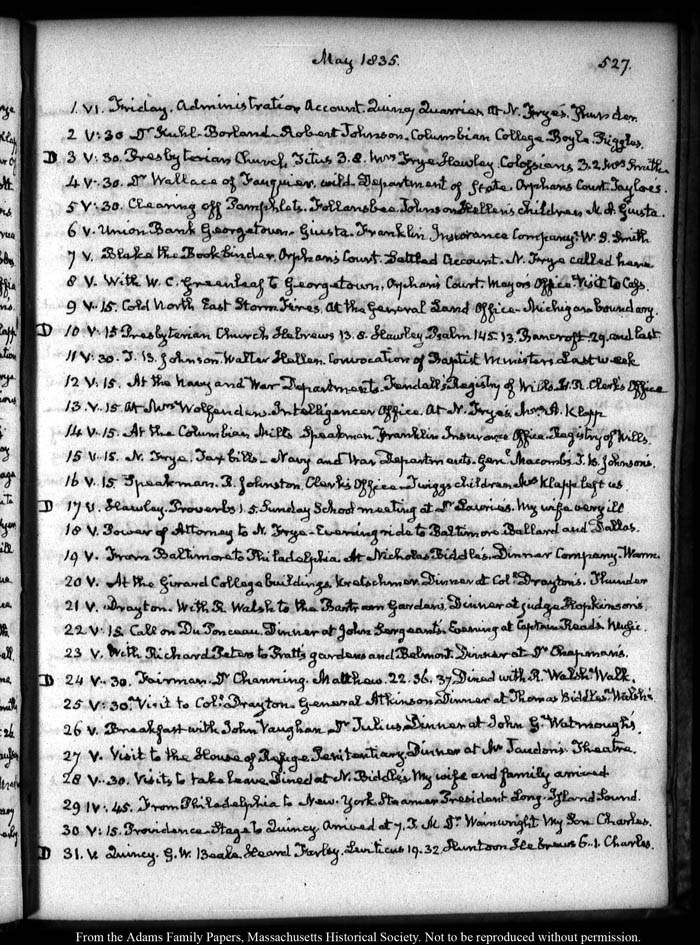 May 1835.
527.
1. VI. Friday. Administration Account. Quincy Quarries. At N. Frye's. Thunder.
2 V:30 Dr Kuhl. Borland. Robert Johnson. Columbian College. Boyle. Riggles.
D 3 V:30. Presbyterian Church, Titus 3.8. Mrs Frye. Hawley. Colossians 3.2 Mrs Smith.
4 V:30. Dr Wallace of Fauquier. wild. Department of State. Orphans Court. Taylor's.
5 V:30. Clearing off Pamphlets. Follansbee. Johnson Hellen's children M. A. Giusta.
6 V. Union Bank Georgetown. Giusta. Franklin Insurance Company. W. S. Smith
7 V. Blake the Bookbinder. Orphan's Court. Settled Account. N. Frye called here
8 V. With W. C. Greenleaf to Georgetown, Orphan's Court. Mayors Office. Visit to
9 V.15. Cold North East Storm. Fires. At the General Land Office. Michigan boundary.
D 10 V:15 Presbyterian Church Hebrews 13.8. Hawley. Psalm 145.13. Bancroft. 29. and last.
11 V:30. T. B. Johnson. Walter Hellen. Convocation of Baptist Ministers Last week
12 V.15. At the Navy and War Departments. Kendall's Registry of Wills. Clerks Office
13. V.15. At Mrs Wolfenden. Intelligencer Office. At N. Frye's. Mrs A. Klapp
14 V.15. At the Columbian Mills. Speakman. Franklin Insurance Office. Registry of Wills.
15 V.15. N. Frye. Tax bills. Navy and War Departments. Genl. Macomb's. T. B. Johnson's.
16 V.15. Speakman. R. Johnston. Clerk's Office. Twiggs children. Mrs Klapp left us
D 17 V. Hawley. Proverbs 1.5. Sunday School meeting at Dr Laurie's. My wife very ill
18 V. Power of Attorney to N. Frye. Evening ride to Baltimore. Ballard and Dallas.
19 V. From Baltimore to Philadelphia. At Nicholas Biddle's. Dinner Company. Warm.
20 V. At the Girard College buildings. Kretschmer. Dinner at Col. Drayton's. Thunder
21 V. Drayton. With R. Walsh to the Bartram Gardens. Dinner at judge Hopkinson's.
22 V.15. Call on Du Ponceau. Dinner at John Sergeant's. Evening at Captain Read's. Music.
23 V. With Richard Peters to Pratt's gardens and Belmont. Dinner at Dr Chapman's.
D 24 V.30. Fairman. Dr Channing. Matthew. 22.36.37. Dined with R. Walsh. Walk.
25 V:30. Visit to Col. Drayton. General Atkinson. Dinner at Thomas Biddle's. Walsh's
26 V. Breakfast with John Vaughan. Dr Julius. Dinner at John G. Watmough's.
27 V. Visit to the House of Refuge. Penitentiary. Dinner at Mr Jaudon's. Theatre.
28 V.30. Visits to take leave. Dined at N. Biddle's. My wife and family arrived
29 IV:45. From Philadelphia to New-York. Steamer President. Long-Island Sound.
30 V:15. Providence. Stage to Quincy. Arrived at 7. Dr. Wainwright. My Son Charles.
D 31. V. Quincy. G. W. Beale. Head Farley. Leviticus 19.32. Huntoon Hebrews 6.1. Charles.
From the Adams Family Papers, Massachusetts Historical Society. Not to be reproduced without permission.